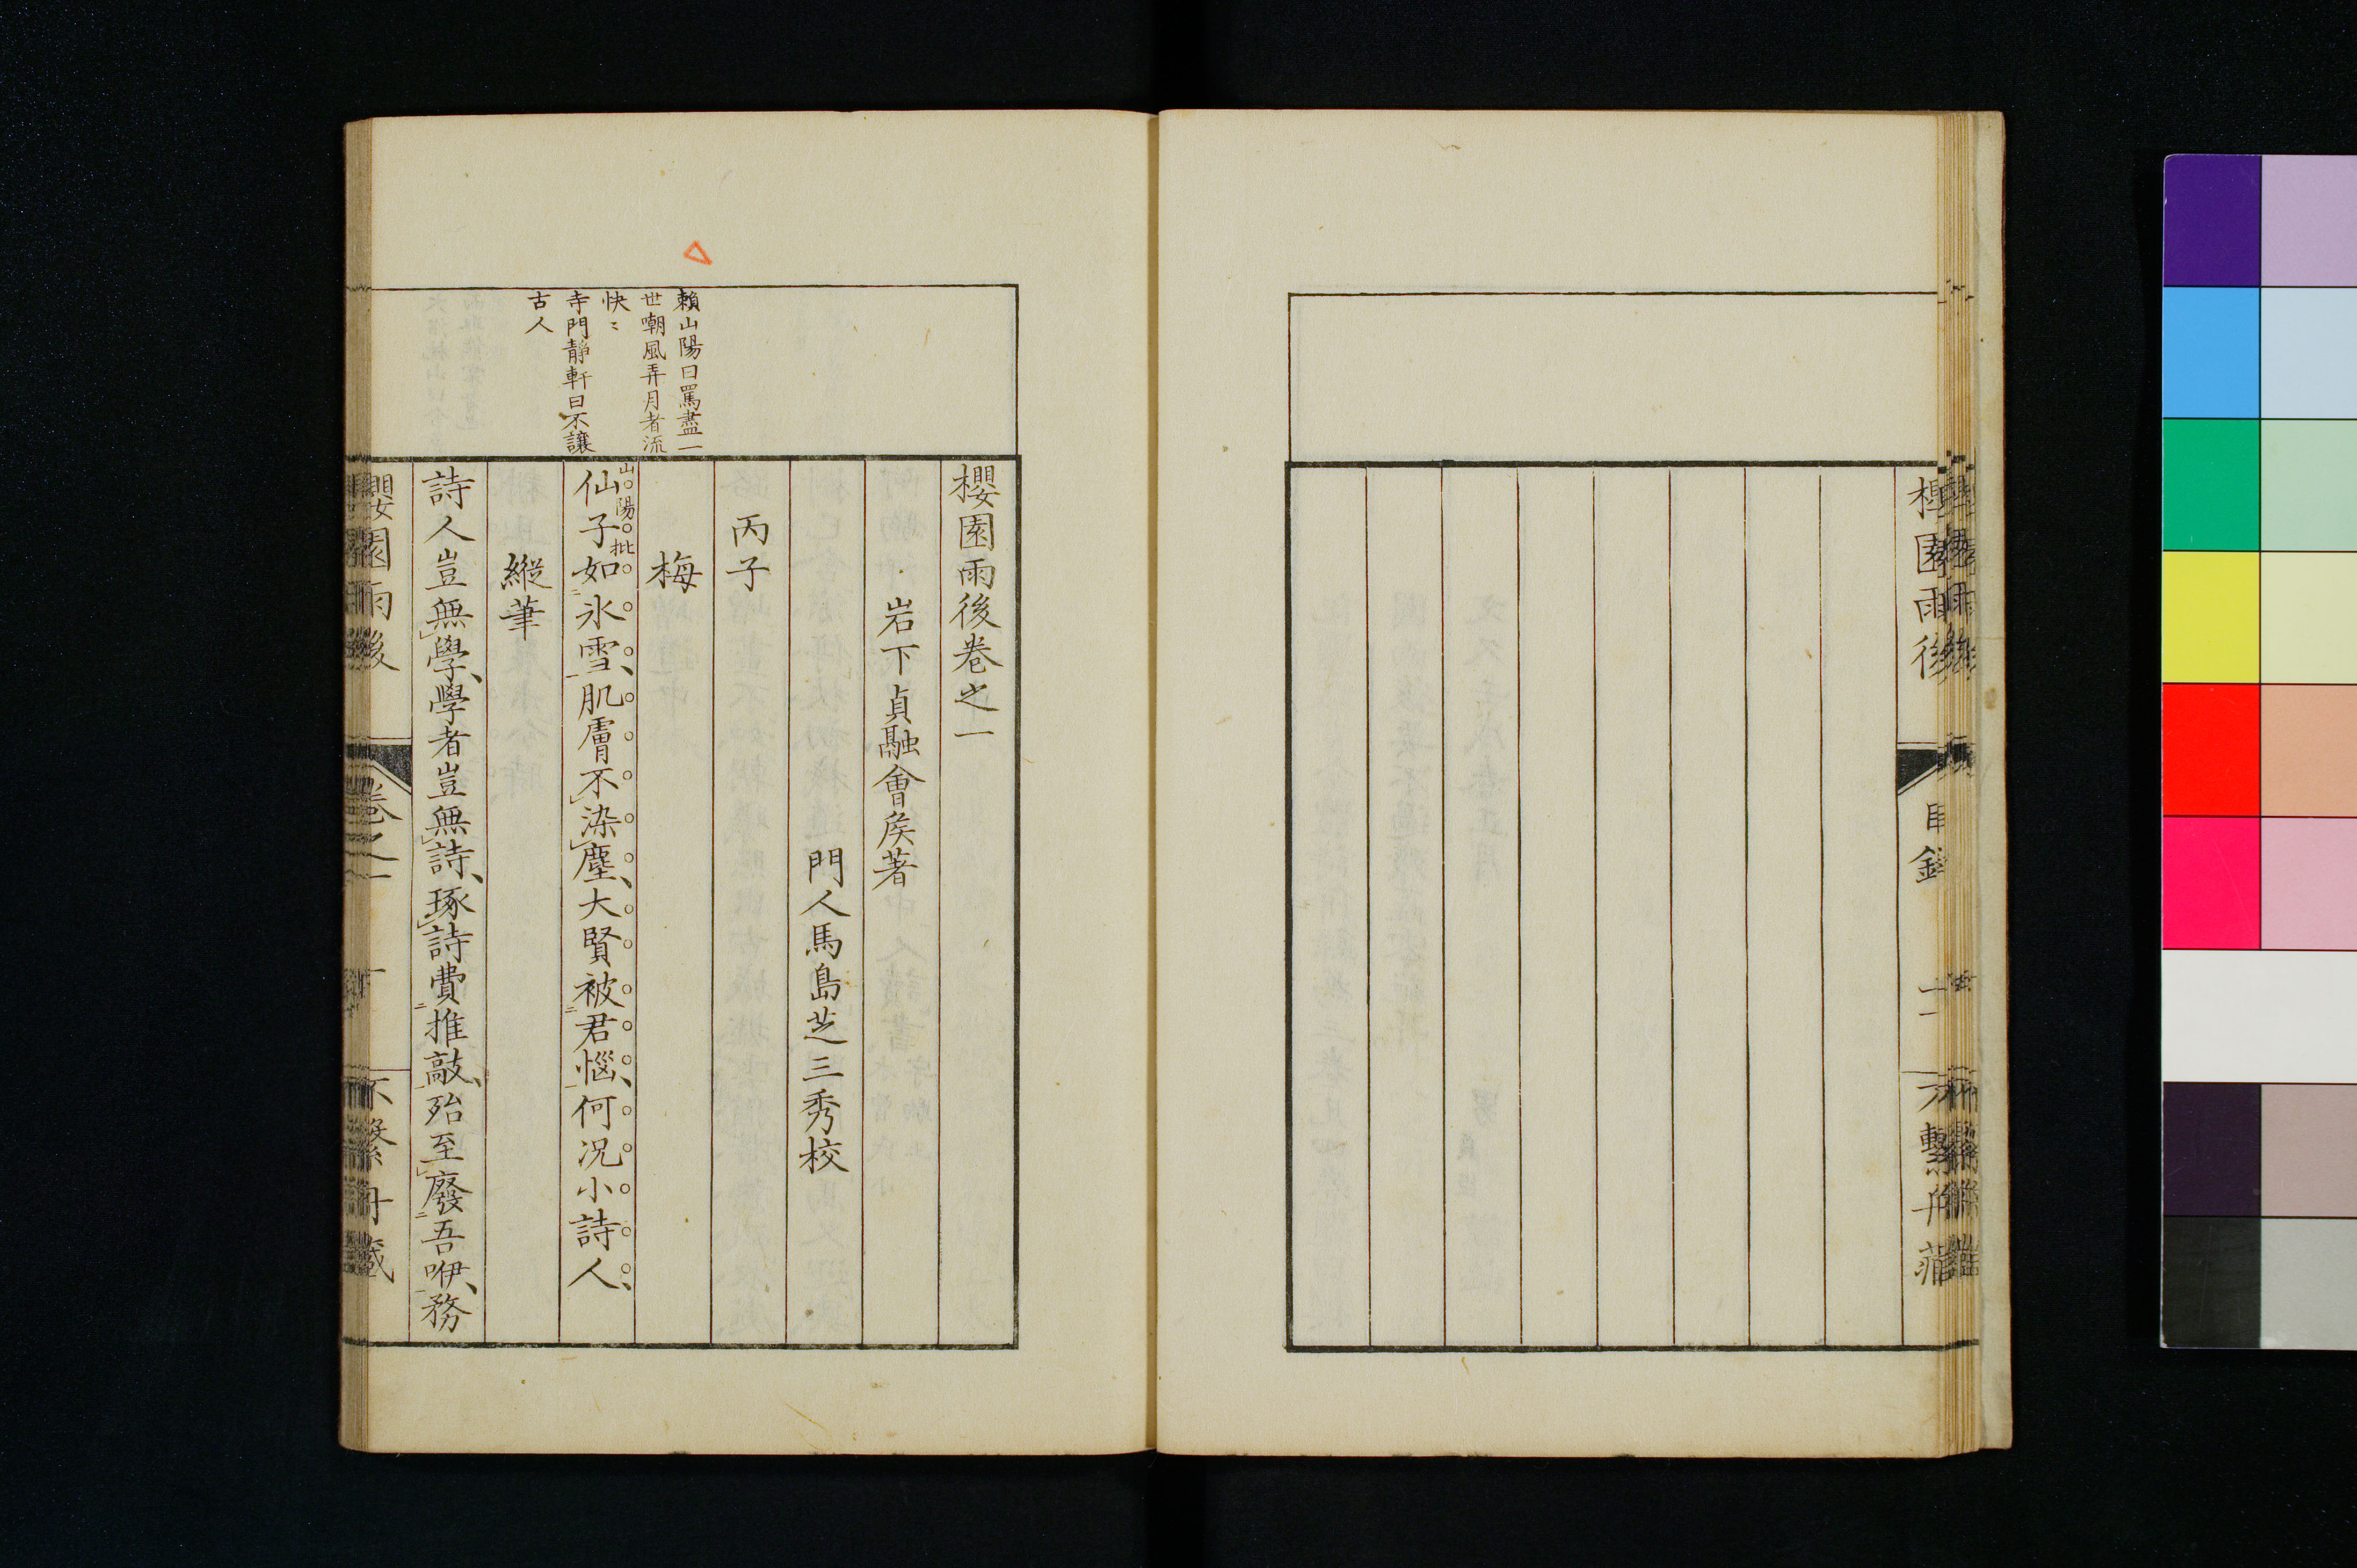 櫻園雨後
目錄
櫻園雨後卷之一
岩下貞融會矦著
門人馬島芝三秀校
丙子
梅
山陽批
仙子如氷雪肌膚不染塵大賢被君惱何况小詩人
縱筆
詩人豈無學學者豈無詩琢詩費推敲殆至廢吾咿務
賴山陽曰罵盡一
世嘲風弄月者流
快〻
寺門靜軒曰不讓
古人
櫻園雨後
卷之一
一
不繫舟藏